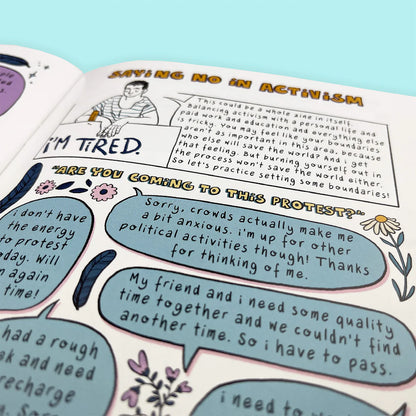 ple
led
s.
SAYING NO IN ACTIVISM
I'M TIRED.
This could be a whole zine in itself.
Balancing activism with a personal life and
paid work and education and everything else
is tricky. You may feel like your boundaries
aren't as important in this area, because
who else will save the world? And i get
that feeling. But burning yourself out in
the process won't save the world either.
So let's practice setting some boundaries!
"ARE YOU COMING TO THIS PROTEST?"
i don't have
the energy
to protest
day. Will
n again
time!
Sorry, crowds actually make me
a bit anxious. i'm up for other
political activities though! Thanks
for thinking of me.
My friend and i need some quality
time together and we couldn't find
another time. So i have to pass.
had a rough
ak and need
recharge
Sorr
i need to